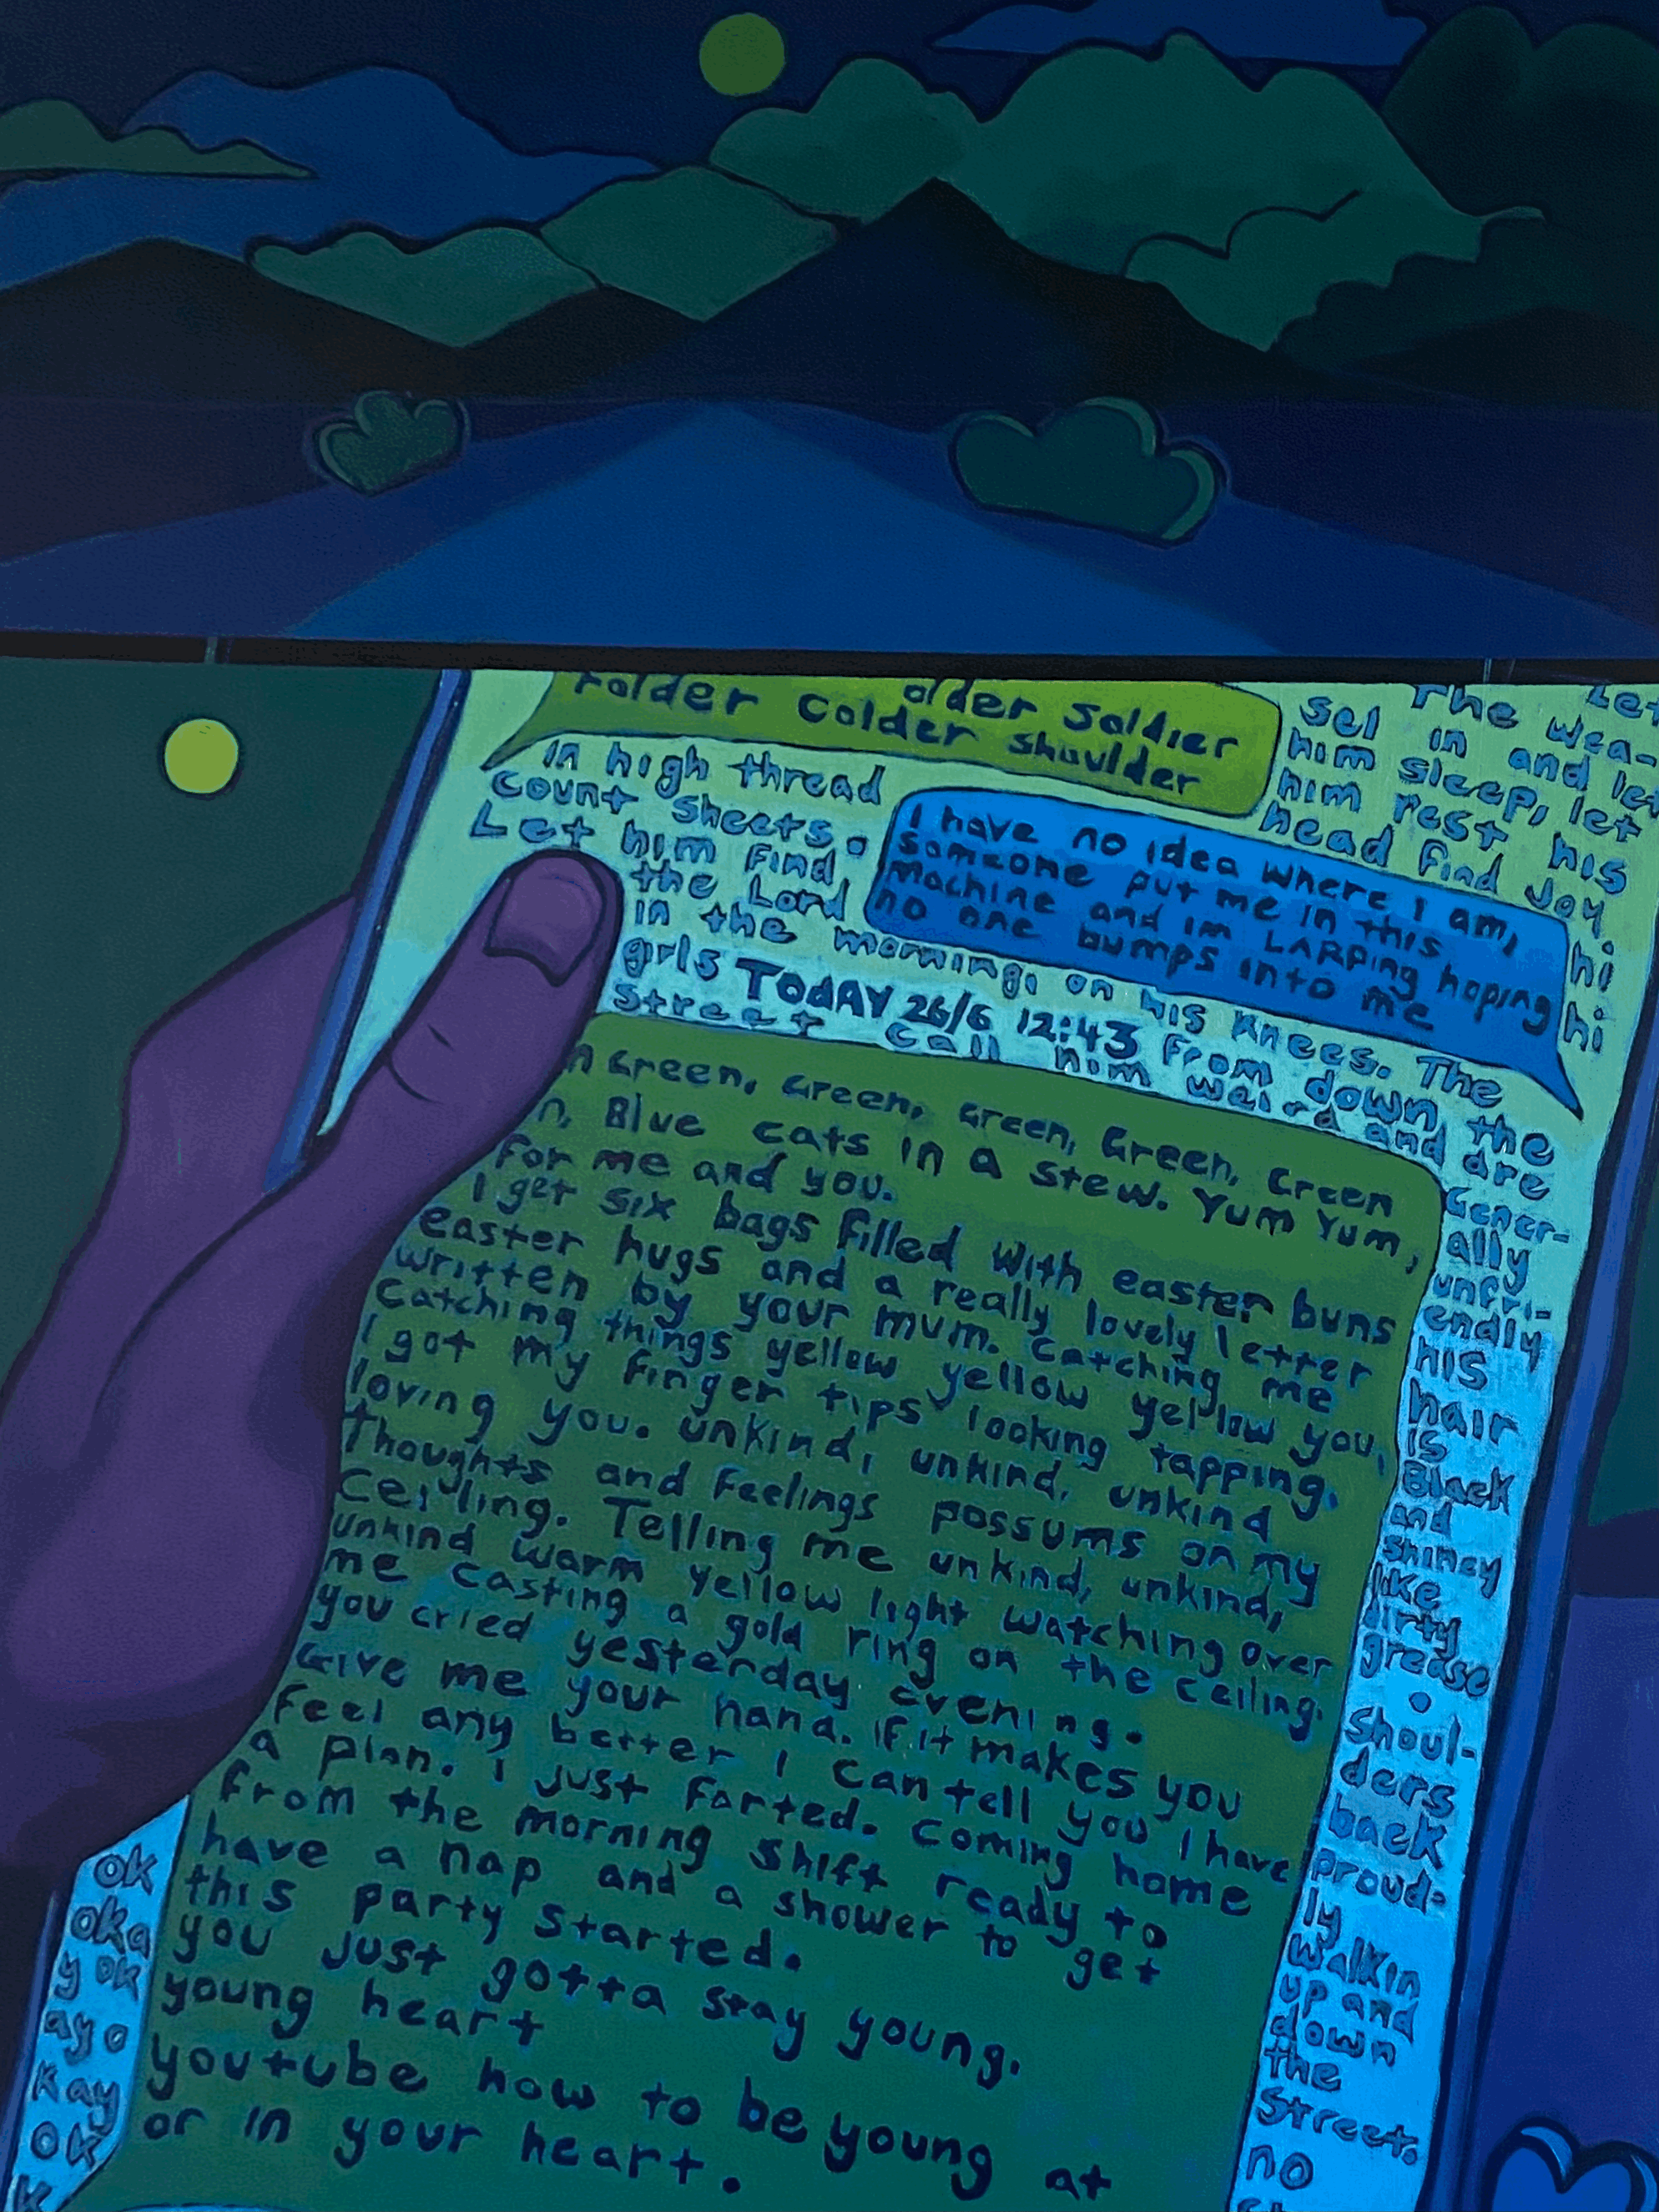 older soldier
Folder colder shoulder
Let
The wea-
sel in and let
him sleep, let
him rest his
head find joy.
In high thread
count sheets.
Let him find
the Lord
in the morning, on his knees. The
girls
from down the
street call him weird and are
Gener-
ally
unfri-
endly
his
hair
is
Black
and
shiney
like
dirty
grease
.
Shoul-
ders
back
proud-
ly
walkin
up and
down
the
street.
no
hi
hi
I have no idea where I am,
someone put me in this
machine and im LARPing hoping
no one bumps into me
TodAY 26/6 12:43
n Green, Green, Green, Green, Green
n, Blue cats in a stew. Yum Yum,
For me and you.
I get six bags filled with easter buns
easter hugs and a really lovely letter
written by your mum. Catching me
Catching things yellow yellow yellow you,
I got my finger tips looking tapping.
loving you. unkind, unkind, unkind
Thoughts and Feelings possums on my
Ceiling. Telling me unkind, unkind,
unkind warm yellow light watching over
me casting a gold ring on the ceiling.
you cried yesterday evening.
Give me your hand. if it makes you
Feel any better I can tell you I have
a plan. I just farted. Coming home
from the morning shift ready to
have a nap and a shower to get
this party started.
you just gotta stay young.
young heart
youtube how to be young at
or in your heart.
ok
oka
y ok
ay o
kay
ok
k